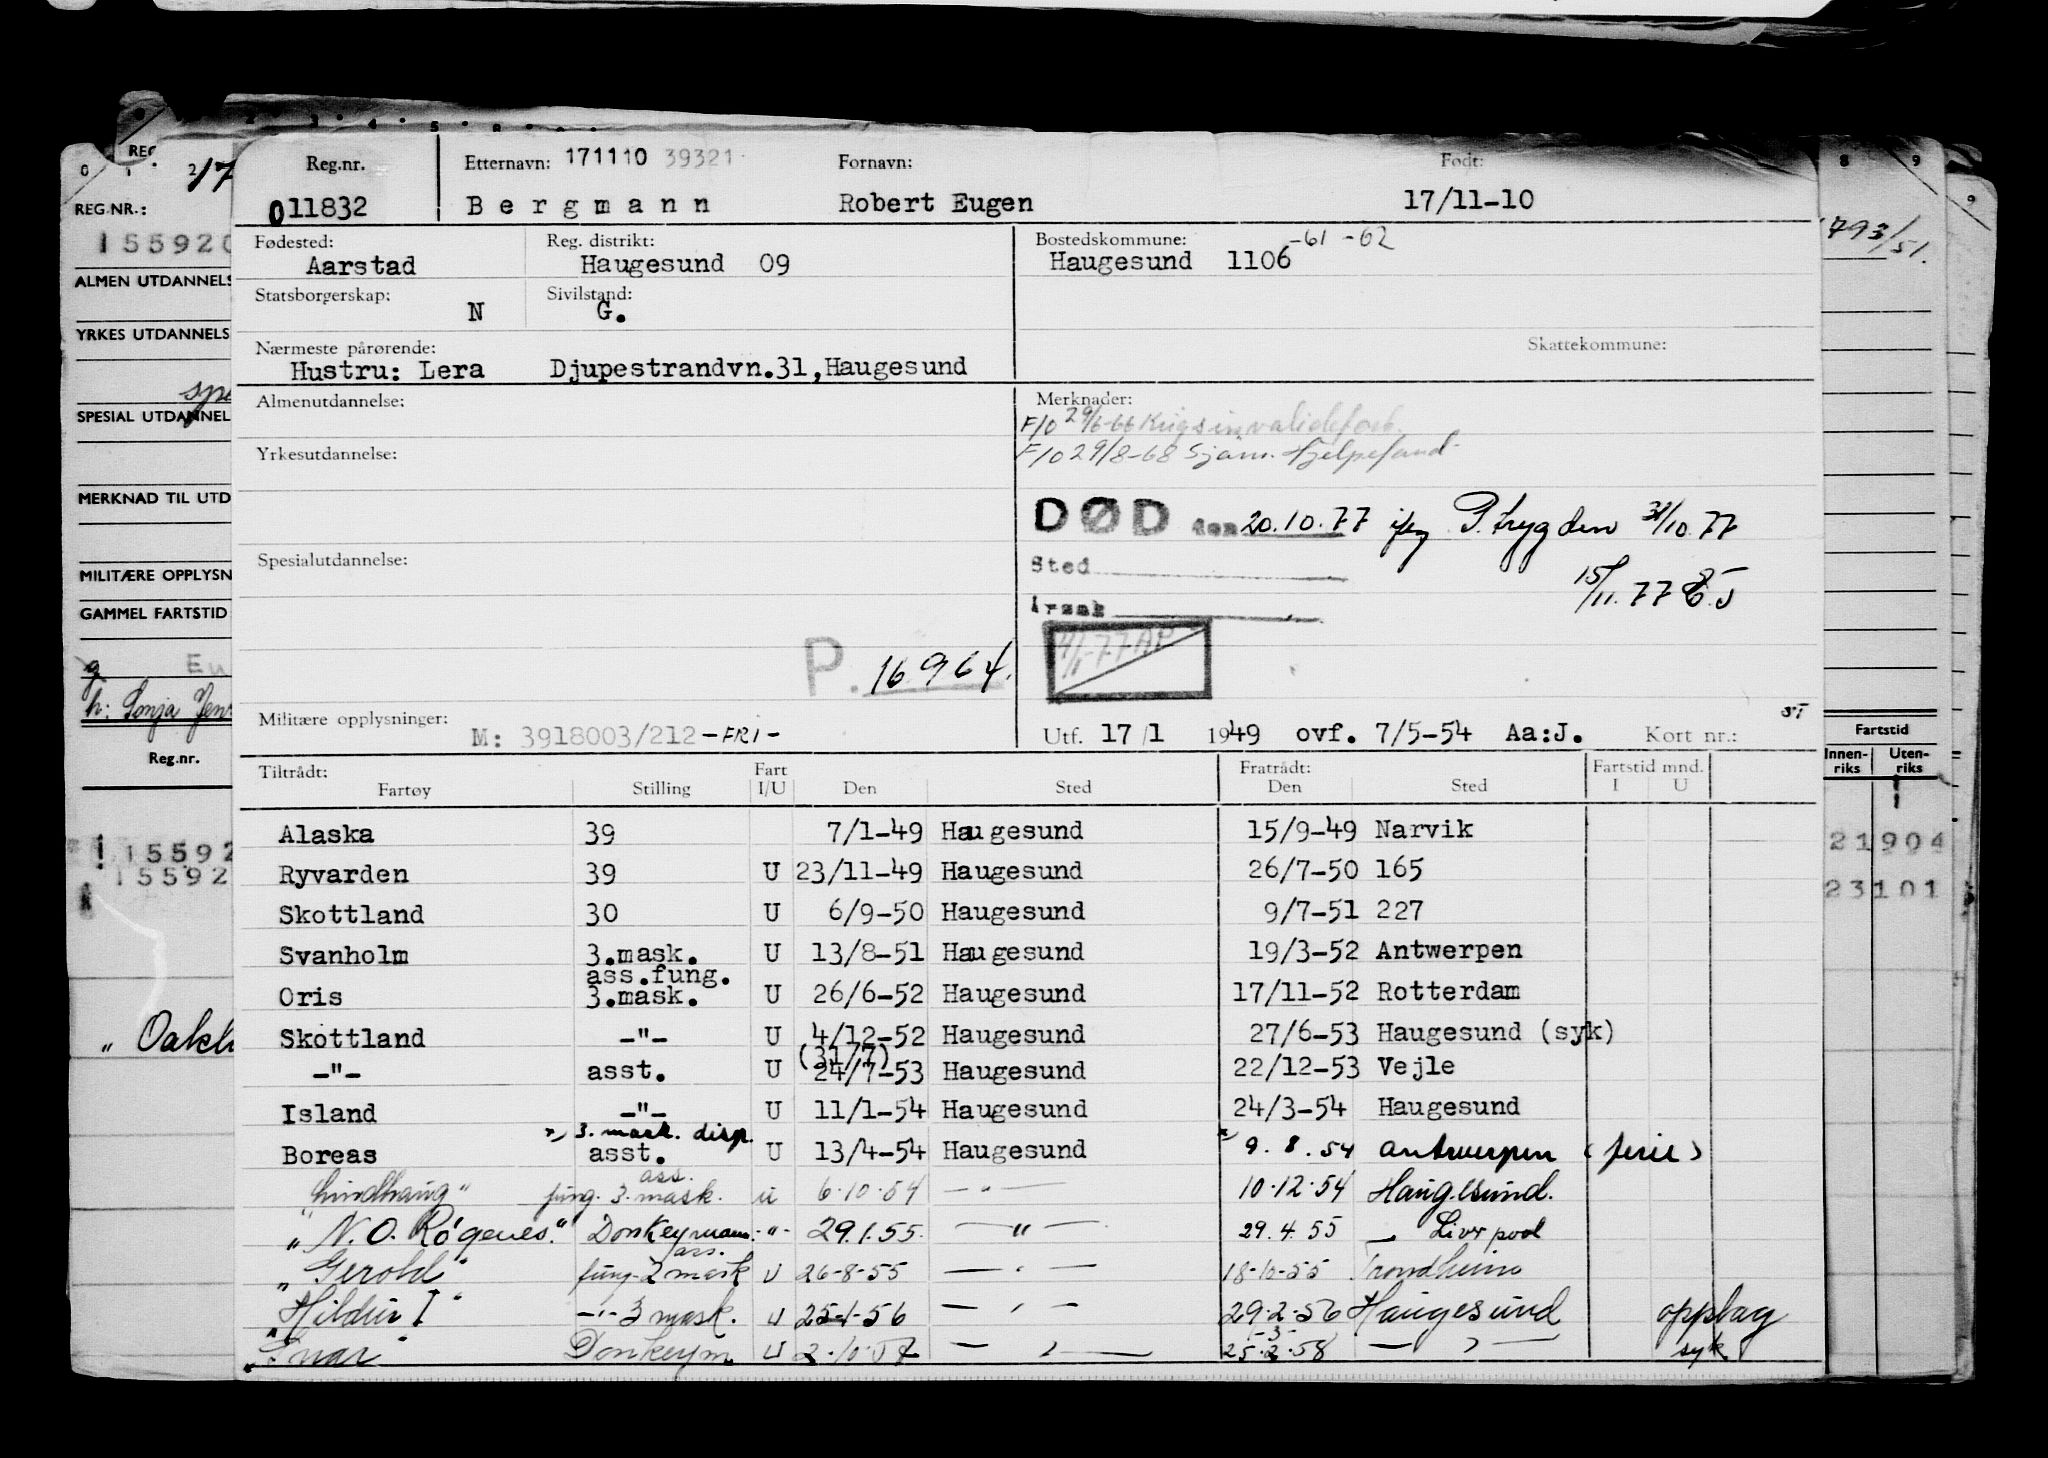 Reg.nr. Etternavn: 171110 39321 Fornavn: Født:
011832 Bergmann Robert Eugen 17/11-10
Fødested: Reg. distrikt: Bostedskommune: -61 -62
Aarstad Haugesund 09 Haugesund 1106
Statsborgerskap: Sivilstand:
N G.
Nærmeste pårørende: Skattekommune:
Hustru: Lera Djupestrandvn.31,Haugesund
Almenutdannelse: Merknader:
F/O 29/6-66 Krigsinvalideforb.
Yrkesutdannelse: F/O 29/8-68 Sjøm. Hjelpefond
DØD den 20.10.77 iflg P.trygden 31/10.77
Spesialutdannelse: Sted
15/11.77
Årsak
P. 16964.
Militære opplysninger: M: 3918003/212 -FRI- Utf. 17/1 1949 ovf. 7/5-54 Aa:J. Kort nr.:
Tiltrådt: Fart Fratrådt: Fartstid mnd.
Fartøy Stilling I/U Den Sted Den Sted I U
Alaska 39 7/1-49 Haugesund 15/9-49 Narvik
Ryvarden 39 U 23/11-49 Haugesund 26/7-50 165
Skottland 30 U 6/9-50 Haugesund 9/7-51 227
Svanholm 3.mask. U 13/8-51 Haugesund 19/3-52 Antwerpen
ass.fung.
Oris 3.mask. U 26/6-52 Haugesund 17/11-52 Rotterdam
Skottland -"- U 4/12-52 Haugesund 27/6-53 Haugesund (syk)
(31/7)
-"- asst. U 24/7-53 Haugesund 22/12-53 Vejle
Island -"- U 11/1-54 Haugesund 24/3-54 Haugesund
x) 3. mask. disp.
Boreas asst. U 13/4-54 Haugesund x) 9. 8. 54 Antwerpen (ferie)
ass.
"Lindhaug" fung. 3. mask. u 6.10.54 — " — 10.12.54 Haugesund.
"N. O. Røgenes." Donkeymann -"- 29.1.55. — " — 29.4.55 — Liverpool
ass.
"Gerold" fung. 2 mask U 26-8-55 — " — 18-10-55 Trondheim
"Hildur I" -"- 3 mask. U 25-1-56 — " — 29.2.56 Haugesund opplag
Donkeym U — " — 25.2.58 — " — syk
REG.NR.:
155920
ALMEN UTDANNELS
YRKES UTDANNELS
SPESIAL UTDANNEL
MERKNAD TIL UTD
MILITÆRE OPPLYSN
GAMMEL FARTSTID
g Eu
h: Sonja
Reg.nr.
15592
15592
793/51.
Fartstid
Innen-riks Uten-riks
21904
23101